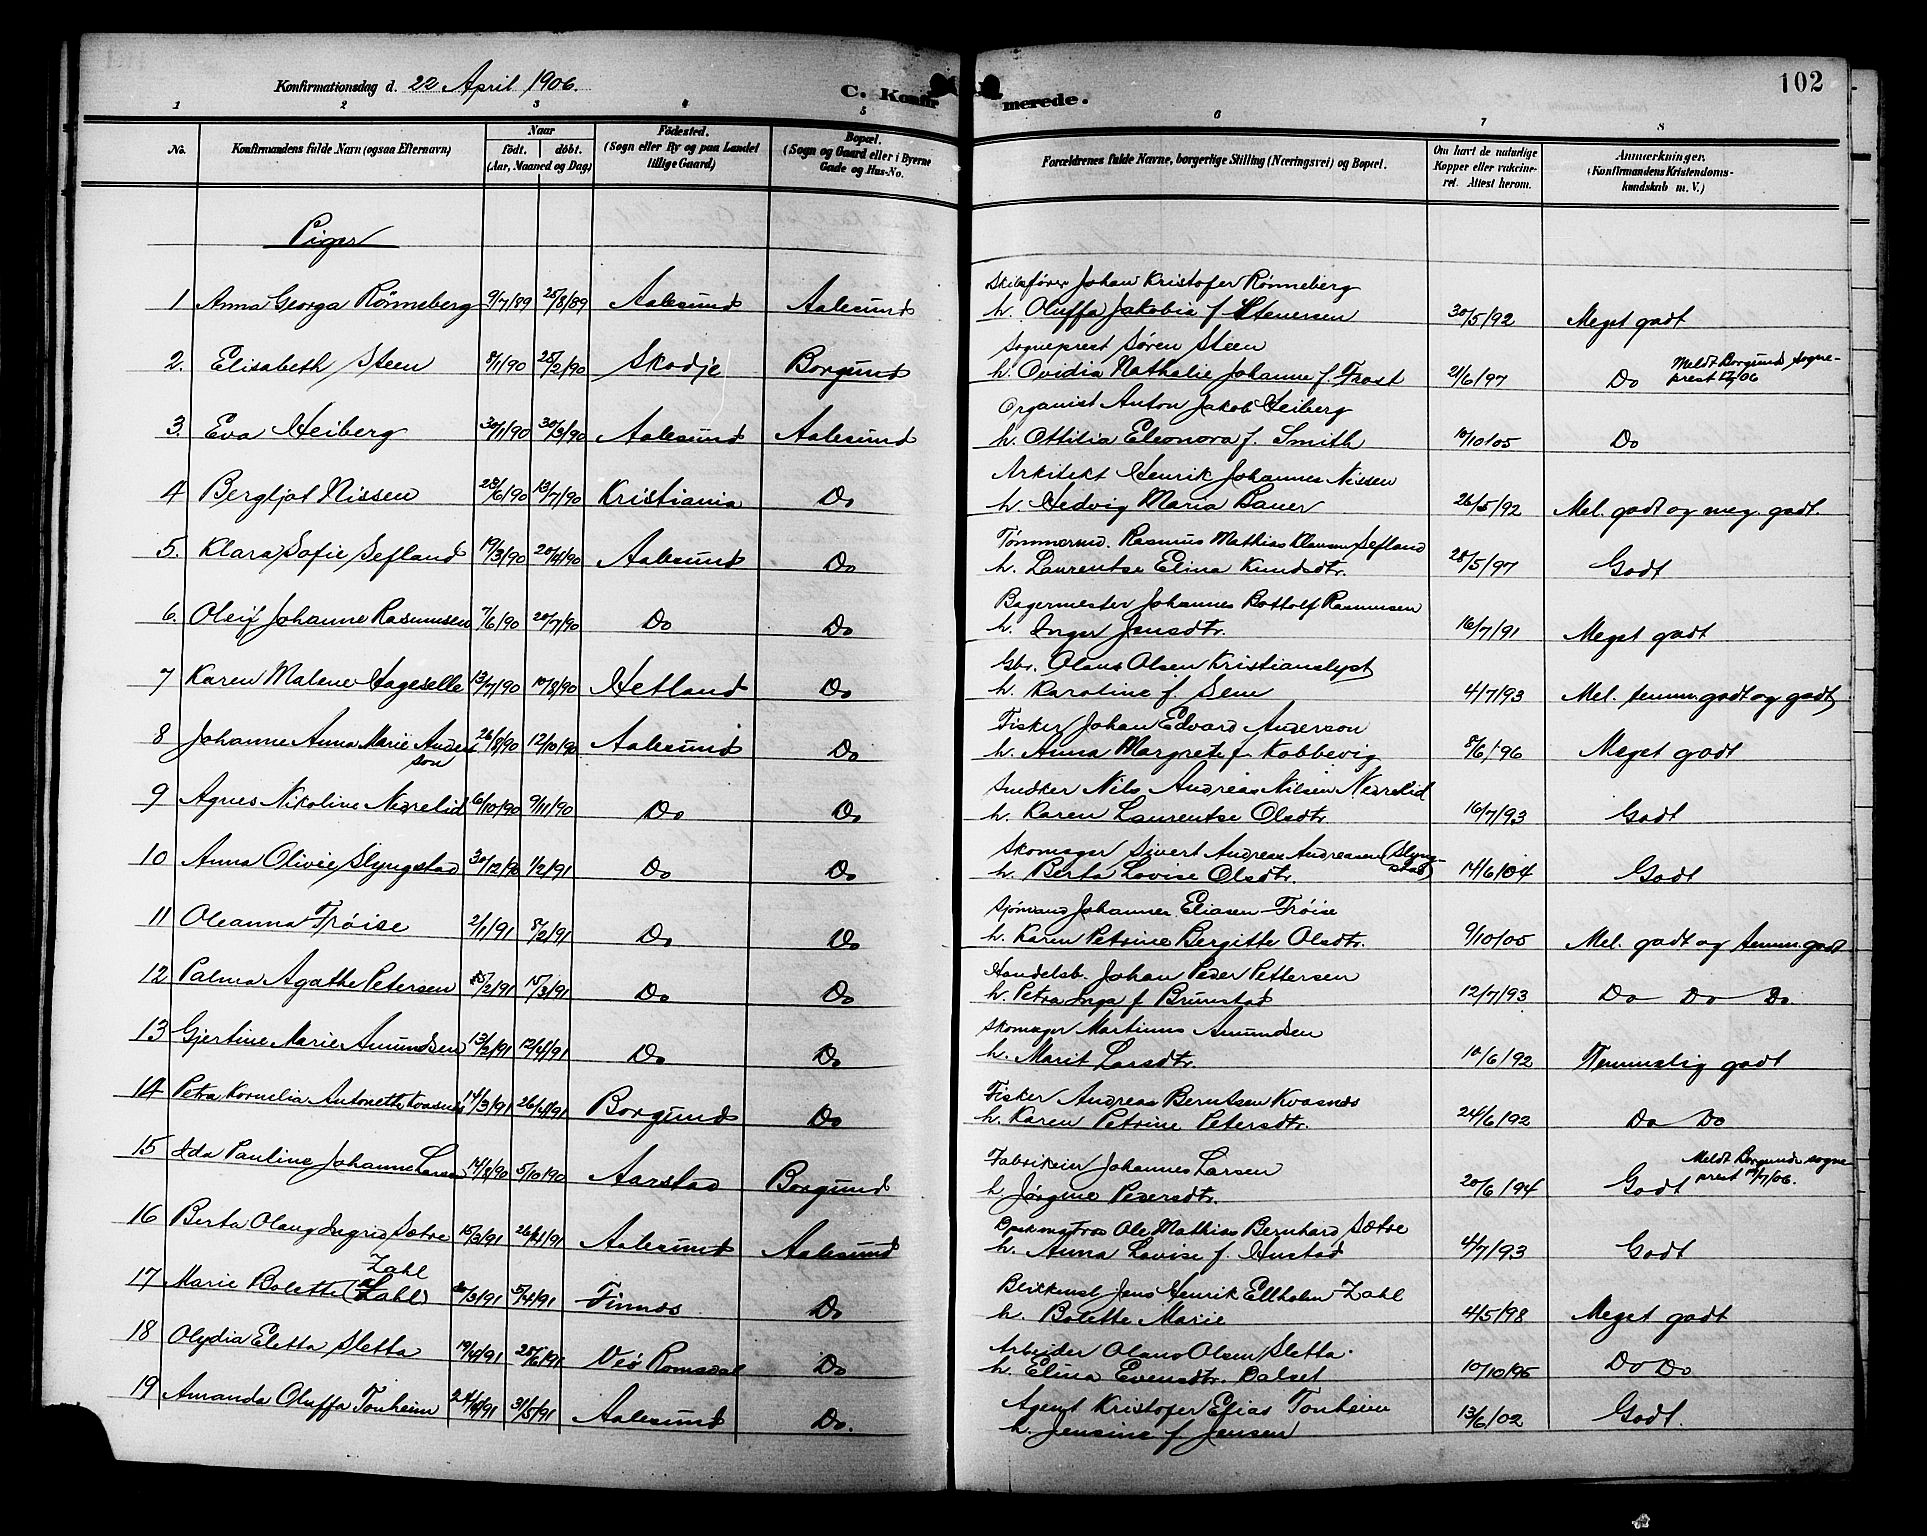 102
Konfirmationsdag d. 22 April 1906.
C. Konfirmerede.
1 2 3 4 5 6 7 8
No.
Konfirmandens fulde Navn (ogsaa Efternavn)
Naar
født. døbt.
(Aar, Maaned og Dag)
Fødested.
(Sogn eller By og paa Landet
tillige Gaard)
Bopæl.
(Sogn og Gaard eller i Byerne
Gade og Hus-No.
Forældrenes fulde Navne, borgerlige Stilling (Næringsvei) og Bopæl.
Om havt de naturlige
Kopper eller vakcine-
ret. Attest herom.
Anmærkninger.
(Konfirmandens Kristendoms-
kundskab m. V.)
Piger
Johan Kristofer Rønneberg
1 Anna Georga Rønneberg 9/7/89 25/8/89 Aalesund Aalesund h. Oluffa Jakobia f Stenersen 30/5/92 Meget godt
Sogneprest Søren Steen
2. Elisabeth Steen 8/1/90 25/2/90 Skodje Borgund h. Ovidia Nathalie Johanne f. Frost 21/6/97 Do Meldt Borgund sogne-
prest /06
Organist Anton Jakob Heiberg
3. Eva Heiberg 30/1/90 30/3/90 Aalesund Aalesund h. Ottilia Eleonora f. Smith 10/10/05 Do
Arkitekt Henrik Johannes Nissen
4 Bergljot Nissen 23/6/90 13/7/90 Kristiania Do h. Hedvig Maria Bauer 26/5/92 Mel. godt og meg. godt.
Tømmerm. Rasmus Mathias Klausen Sefland
5. Klara Sofie Sefland 19/3/90 20/4/90 Aalesund Do h. Laurentse Elina Knudsdtr. 28/5/97 Godt
Bagermester Johannes Bottolf Rasmusen
6. Johanne Rasmusen 7/6/90 20/7/90 Do Do h. Inger Jensdtr. 16/7/91 Meget godt
Gbr. Olaus Olsen Kristianslyst
7 Karen Malene Hageselle 13/7/90 10/8/90 Hetland Do h. Karoline f. Sem 4/7/93 Mel. temm. godt og godt
Fisker Johan Edvard Anderson
8 Johanne Anna Marie Ander-
son 26/8/90 12/10/90 Aalesund Do h. Anna Margrete f Kobbevig 8/6/96 Meget godt
Snedker Nils Andreas Nilsen Nedrelid
9 Agnes Nikoline Nedrelid 6/10/90 9/11/90 Do Do h. Karen Laurentse Olsdtr. 16/7/93 Godt
Skomager Sivert Andreas Andreasen (Slyng-
stad)
10 Anna Olivie Slyngstad 30/12/90 1/2/91 Do Do h. Berta Lovise Olsdtr. 14/6/04 Godt
Sjømand Johannes Eliasen Frøise
11 Oleanna Frøise 2/1/91 8/2/91 Do Do h. Karen Petrine Bergitte Olsdtr. 9/10/05 Mel. godt og temm. godt
Handelsb. Johan Peder Pettersen
12 Palma Agathe Petersen /2/91 15/3/91 Do Do h. Petra Inga f Brunstad 12/7/93 Do Do Do
Skomager Martinus Amundsen
13 Gjertine Marie Amundsen 13/2/91 12/4/91 Do Do h. Marit Larsdtr. 10/6/92 Temmelig godt
Fisker Andreas Berntsen Kvasnes
14 Petra Kornelia Antonette Kvasnes 14/3/91 26/4/91 Borgund Do h. Karen Petrine Petersdtr. 24/6/92 Do Do
Fabrikeier Johannes Larsen
15 Ida Pauline Johanne Larsen 14/8/90 5/10/90 Aarstad Borgund h Jørgine Pedersdtr. 20/6/94 Godt Meldt Borgunds sogne-
prest 14/7/06.
Ole Mathias Bernhard Sætre
16 Berta Olaug Ingrid Sætre 15/3/91 26/4/91 Aalesund Aalesund h. Anna Lovise f. Hustad 4/7/93 Godt
Blikkensl. Jens Henrik Ellholm Zahl
17 Marie Bolette (Zahl) Zahl /3/91 5/4/91 Finnæs Do h. Bolette Marie 4/5/98 Meget godt
Arbeider Olaus Olsen Sletta.
18 Olydia Eletta Sletta 19/4/91 28/6/91 Veø Romsdal Do h. Elina Evensdtr. Dalset 10/10/95 Do Do
Agent Kristofer Elias Tonheim
19 Amanda Oluffa Tonheim 24/4/91 31/5/91 Aalesund Do. h. Jensine f Jensen 13/6/02 Godt.